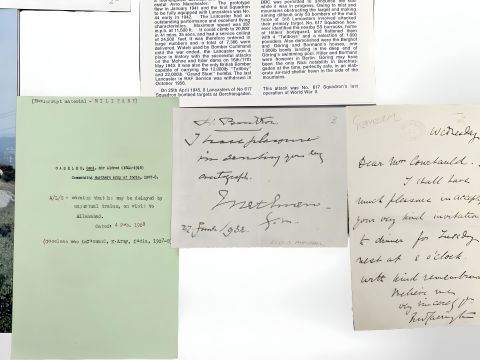 useful Avro Manchester. The prototype
flew in January 1941 and the first Squadron
to be fully equipped with Lancasters was No.
44 early in 1942. The Lancaster had an
outstanding performance and excellent flying
characteristics. Maximum speed was 287
m.p.h. at 11,500 ft. It could climb to 20,000'
in 41.6 mins, and had a service ceiling
of 24,500 feet. It was therefore entered in
large numbers and a total of 7,366 were
delivered. Widely used by Bomber Command
until the war ended, the Lancaster won a
place in history with the successful attacks
on the Mohne and Eder dams on 16th/17th
May 1943. It was also the only British bomber
capable of carrying the 12,000lb "Tallboy"
and 22,000lb "Grand Slam" bombs. The last
Lancaster in RAF Service was withdrawn in
October 1956.
On 25th April 1945, 8 Lancasters of No. 617
Squadron bombed targets at Berchtesgaden.
BBC was permitted to announce the raid
while it was in progress. Owing to mist and
snow obstructing the target and making
aiming difficult only 53 bombers of the main
force of 318 Lancasters involved attacked
their primary target. No. 617 Squadron how-
ever identified the nearby SS barracks, home
of Hitler's bodyguard, and flattened them
with 4 "Tallboys" and a selection of 1,000
pounders. Also demolished were the Berghof
and Göring and Bormann's homes, one
1,000lb bomb landing in the deep end of
Göring's swimming pool. Hitler and Bormann
were however in Berlin. Göring may have
been the only Nazi notable in Berchtes-
gaden at the time, perfectly safe, in an elab-
orate air-raid shelter beneath in the side of
the mountains.
This attack was No. 617 Squadron's last
operation of World War II.
(Manuscript material - MILITARY)
GASELEE, Genl. Sir Alfred (1844-1918)
Commanding Northern Army of India, 1907-8.
A/L/S - warning that he may be delayed by
unpunctual trains, on visit to
Allahabad.
Dated: 4 Feb. 1908
(Gaselee was
H. Boulton
I have pleasure
in sending you my
autograph.
Methuen
General
Wednesday
Dear Mrs Courtauld.
I shall have
much pleasure in accepting
your very kind invitation
to dinner for Tuesday
next at 8 o'clock.
with kind remembrances
Believe me
very sincerely